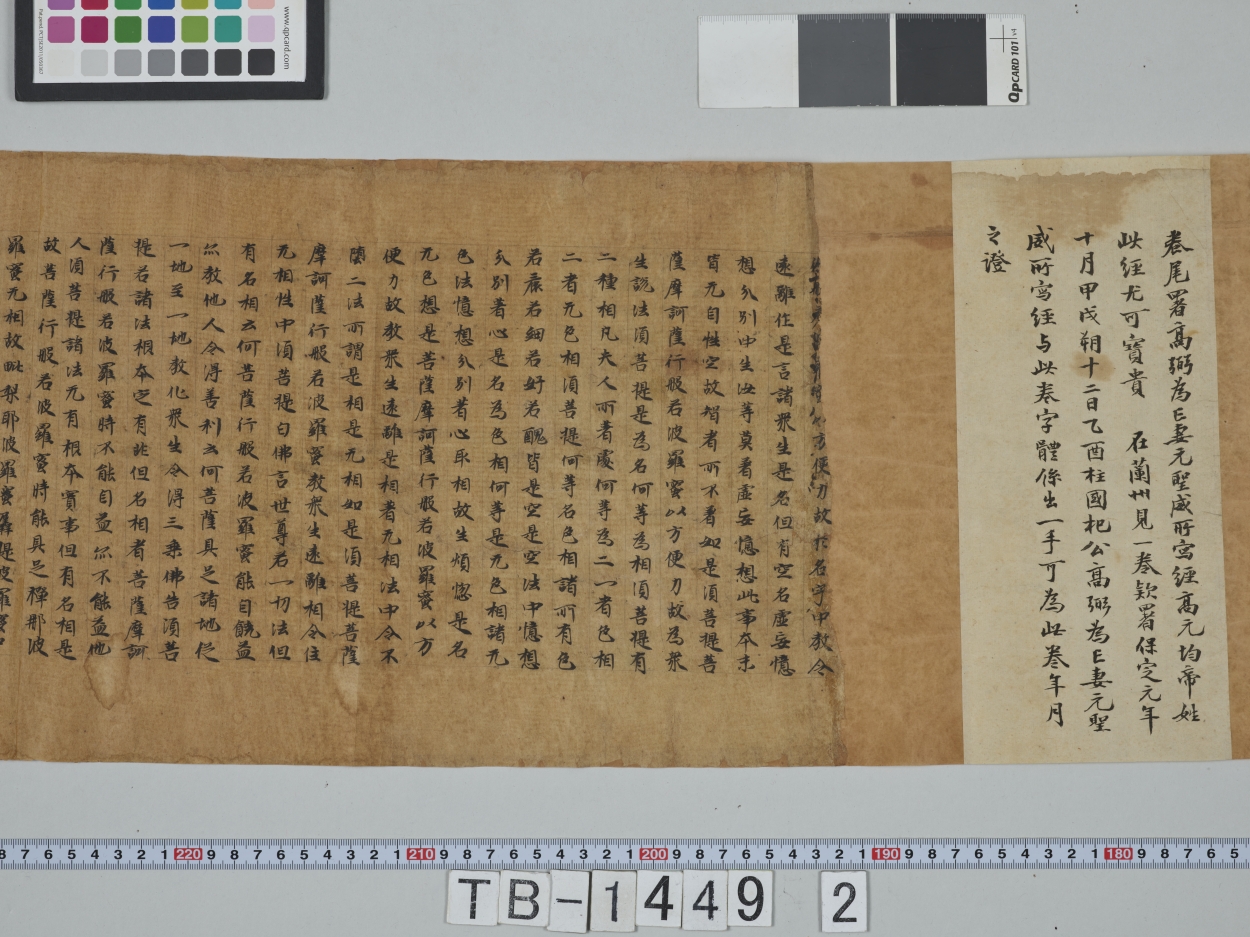 卷尾署高弼為亡妻元聖威所寫經高元均帝姓
此經尤可寶貴 在蘭州見一卷欵署保定元年
十月甲戌朔十二日乙酉柱國杞公高弼為亡妻元聖
威所寫經与此卷字體係出一手可為此卷年月
之證
方便力故於名字中教令
遠離作是言諸衆生是名但有空名虛妄憶
想分別中生汝等莫着虛妄憶想此事本末
皆无自性空故智者所不着如是須菩提菩
薩摩訶薩行般若波羅蜜以方便力故為衆
生說法須菩提是為名何等為相須菩提有
二種相凡夫人所着處何等為二一者色相
二者无色相須菩提何等名色相諸所有色
若麁若細若好若醜皆是空是空法中憶想
分別著心是名為色相何等是无色相諸无
色法憶想分別著心取相故生煩惱是名
无色想是菩薩摩訶薩行般若波羅蜜以方
便力故教衆生遠離是相著无相法中令不
墮二法所謂是相是无相如是須菩提菩薩
摩訶薩行般若波羅蜜教衆生遠離相令住
无相性中須菩提白佛言世尊若一切法但
有名相云何菩薩行般若波羅蜜能自饒益
尒教他人令得善利云何菩薩具足諸地從
一地至一地教化衆生令得三乘佛告須菩
提若諸法根本定有非但名相者菩薩摩訶
薩行般若波羅蜜時不能自益尒不能益他
人須菩提諸法无有根本實事但有名相是
故菩薩行般若波羅蜜時能具足禪那波
羅蜜无相故毗梨耶波羅蜜羼提波羅蜜
www.qpcard.com
QPCARD 101 v4
8 7 6 5 4 3 2 1 220 9 8 7 6 5 4 3 2 1 210 9 8 7 6 5 4 3 2 1 200 9 8 7 6 5 4 3 2 1 190 9 8 7 6 5 4 3 2 1 180 9 8 7 6 5
TB-1449 2